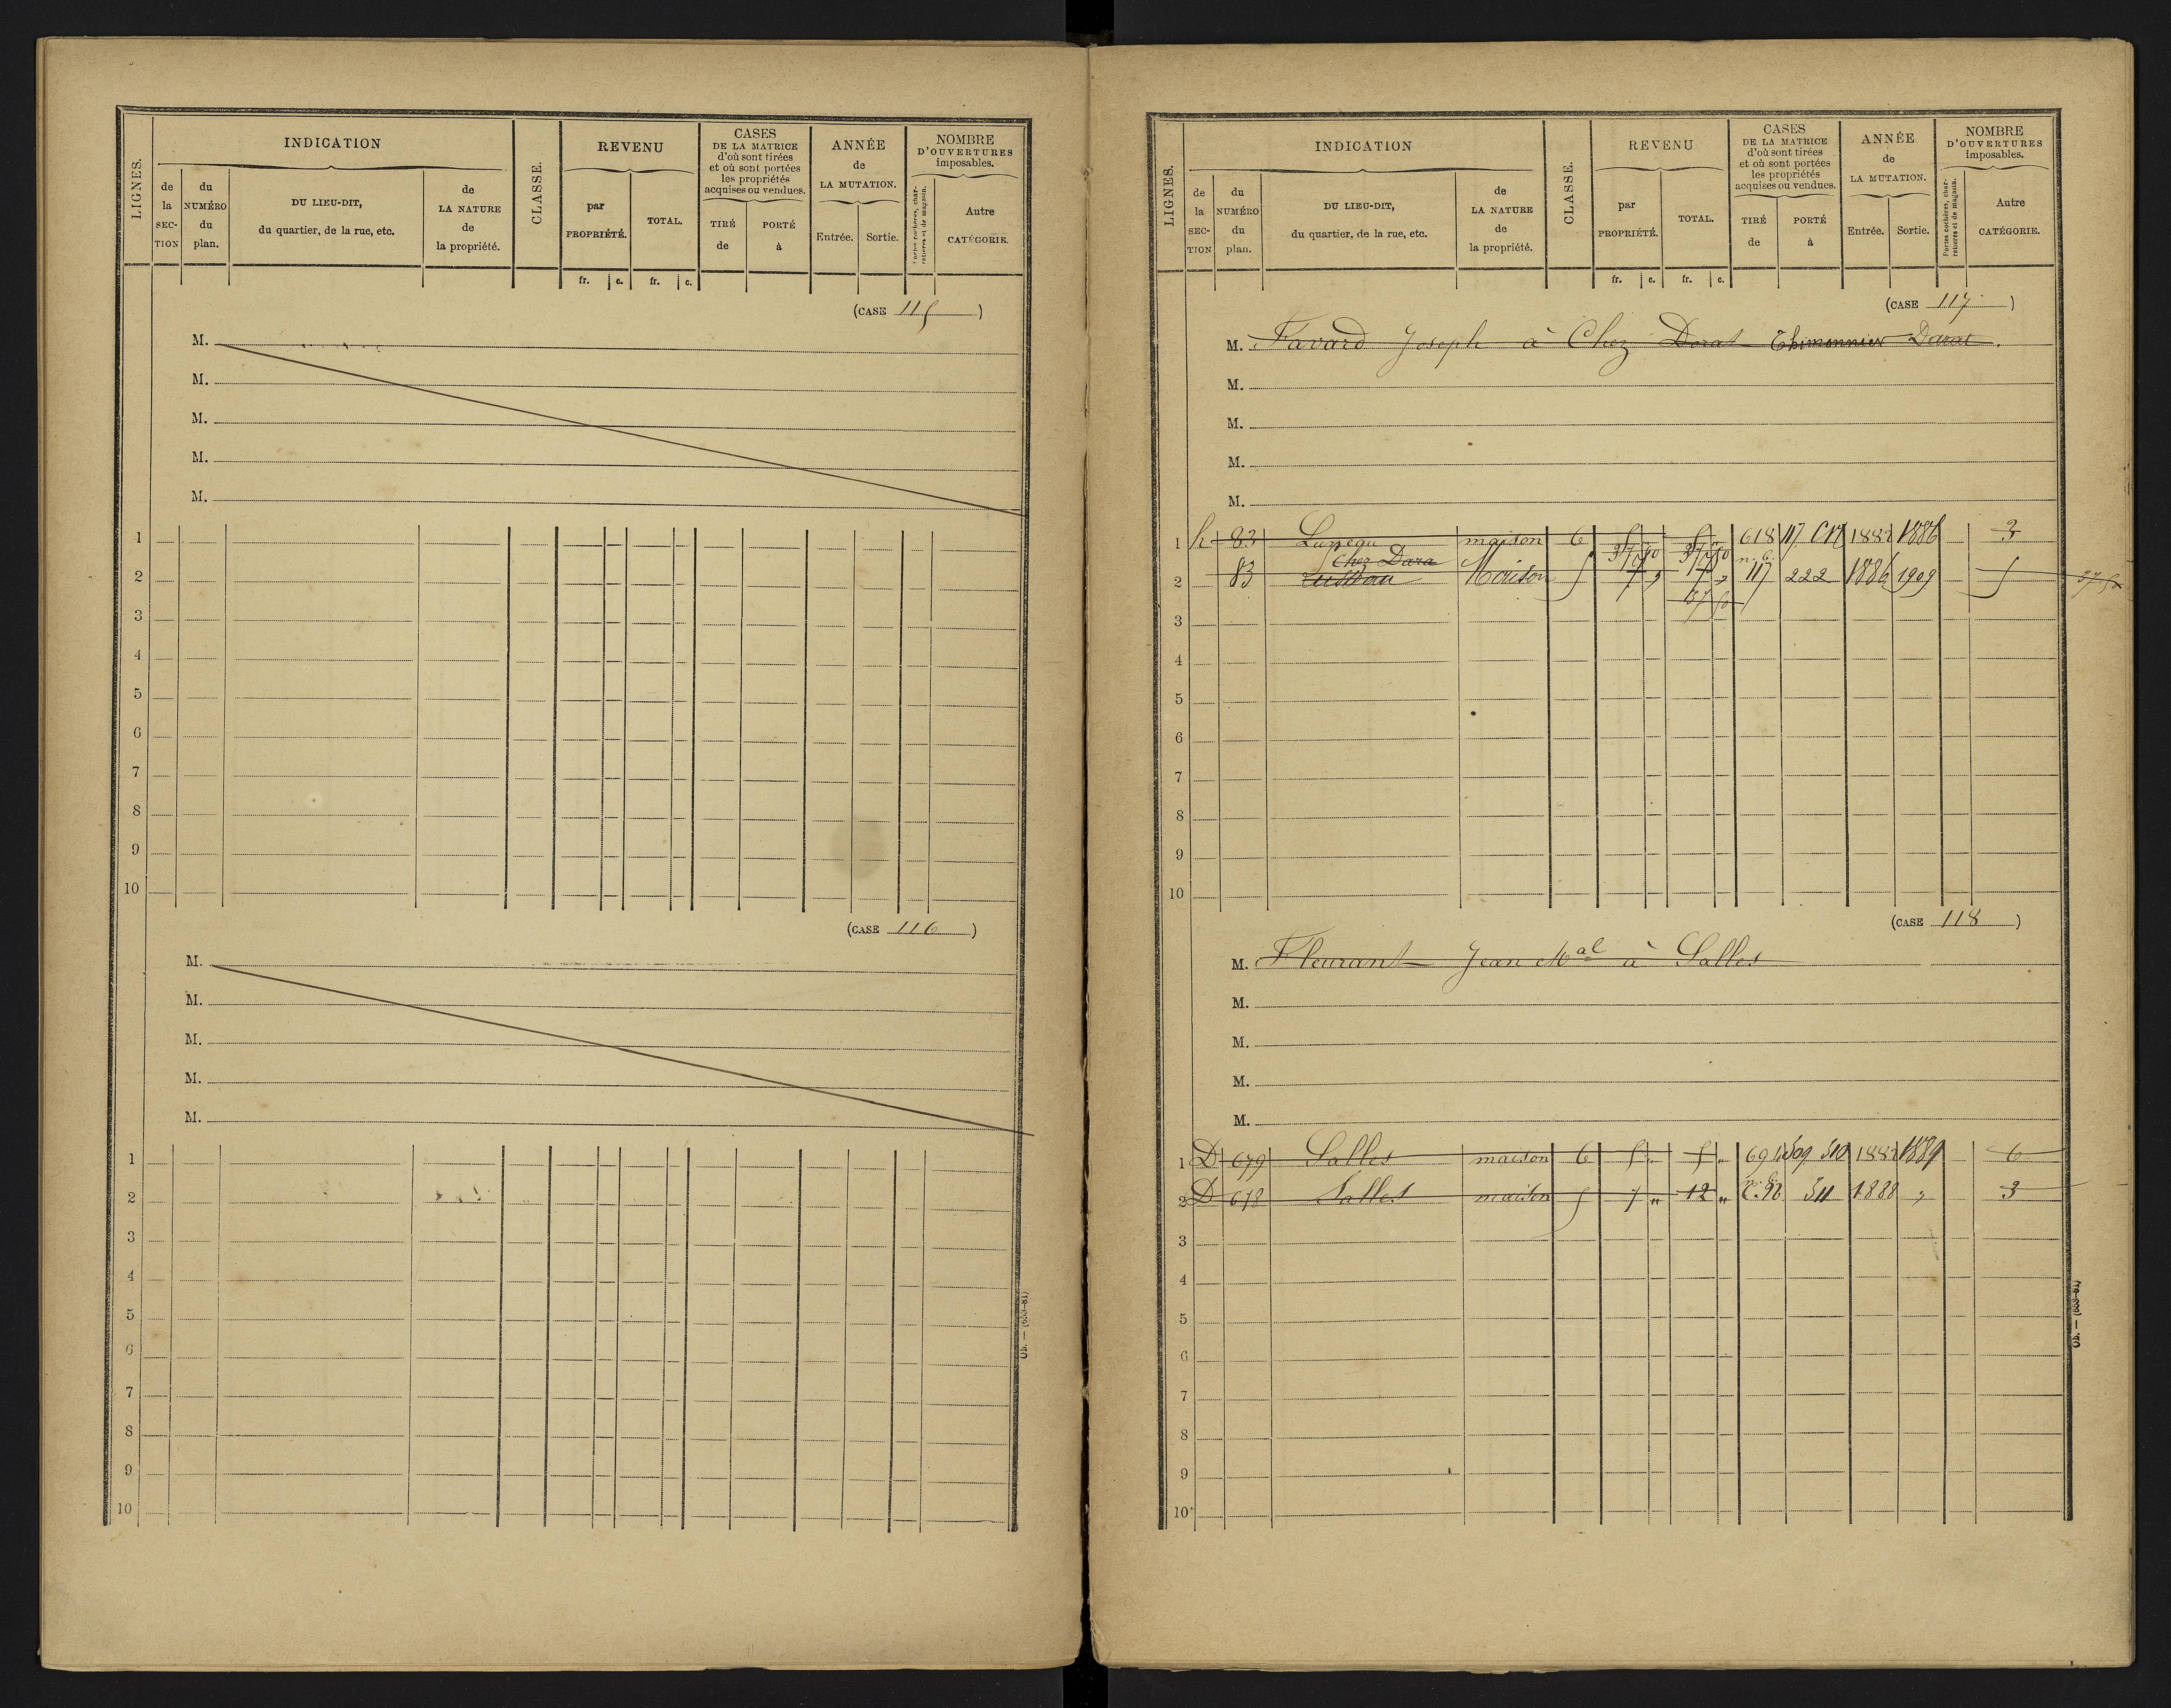 LIGNES.
INDICATION
de la SEC-TION
du NUMÉRO du plan.
DU LIEU-DIT, du quartier, de la rue, etc.
de LA NATURE de la propriété.
CLASSE.
REVENU
par PROPRIÉTÉ.
TOTAL.
fr. c. fr. c.
CASES
DE LA MATRICE
d'où sont tirées
et où sont portées
les propriétés
acquises ou vendues.
TIRÉ de
PORTÉ à
ANNÉE
de
LA MUTATION.
Entrée. Sortie.
NOMBRE
D'OUVERTURES
imposables.
Portes cochères, charretières et de magasin.
Autre CATÉGORIE.
(CASE 115)
M.
M.
M.
M.
M.
1
2
3
4
5
6
7
8
9
10
(CASE 116)
M.
M.
M.
M.
M.
1
2
3
4
5
6
7
8
9
10
Ob. — (653-81)
LIGNES.
INDICATION
de la SEC-TION
du NUMÉRO du plan.
DU LIEU-DIT, du quartier, de la rue, etc.
de LA NATURE de la propriété.
CLASSE.
REVENU
par PROPRIÉTÉ.
TOTAL.
fr. c. fr. c.
CASES
DE LA MATRICE
d'où sont tirées
et où sont portées
les propriétés
acquises ou vendues.
TIRÉ de
PORTÉ à
ANNÉE
de
LA MUTATION.
Entrée. Sortie.
NOMBRE
D'OUVERTURES
imposables.
Portes cochères, charretières et de magasin.
Autre CATÉGORIE.
(CASE 117)
M. Favard Joseph à Chez Dorat Thimonnier Darat.
M.
M.
M.
M.
1 83 maison 6 618 117 1882 1886 3
Chez Dara
2 83 Maison 5 7 „ 7 „ 117 222 1886 1909 5
37 50
3
4
5
6
7
8
9
10
(CASE 118)
M. Fleurant Jean Mal à Salles
M.
M.
M.
M.
1 D 679 Salles maison 6 5 „ 5 „ 694 309 310 1882 1889 6
2 D 678 Salles maison 5 7 „ 12 „ 311 1888 „ 3
3
4
5
6
7
8
9
10
Ob. — (653-81)